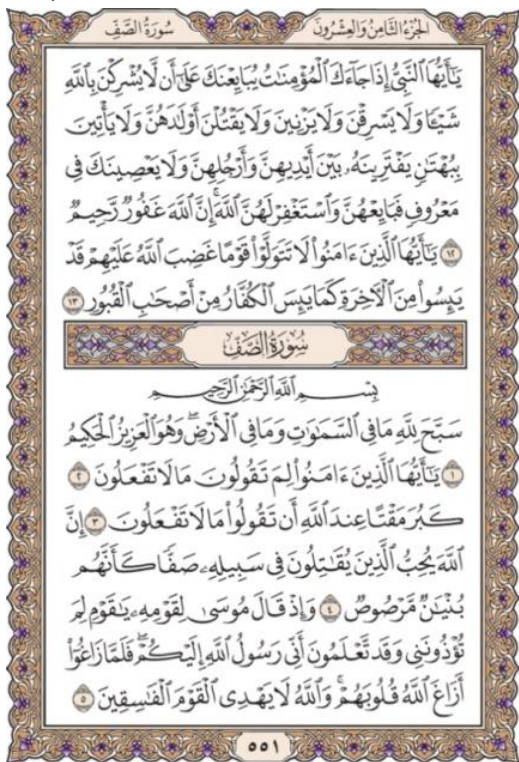 سُورَةُ الصَّفِّ	الجُزْءُ الثَّامِنُ وَالعِشْرُونَ
يَٰٓأَيُّهَا ٱلنَّبِيُّ إِذَا جَآءَكَ ٱلْمُؤْمِنَٰتُ يُبَايِعْنَكَ عَلَىٰٓ أَن لَّا يُشْرِكْنَ بِٱللَّهِ
شَيْـًٔا وَلَا يَسْرِقْنَ وَلَا يَزْنِينَ وَلَا يَقْتُلْنَ أَوْلَٰدَهُنَّ وَلَا يَأْتِينَ
بِبُهْتَٰنٍ يَفْتَرِينَهُۥ بَيْنَ أَيْدِيهِنَّ وَأَرْجُلِهِنَّ وَلَا يَعْصِينَكَ فِى
مَعْرُوفٍ فَبَايِعْهُنَّ وَٱسْتَغْفِرْ لَهُنَّ ٱللَّهَ ۚ إِنَّ ٱللَّهَ غَفُورٌ رَّحِيمٌ
١٢ يَٰٓأَيُّهَا ٱلَّذِينَ ءَامَنُوا۟ لَا تَتَوَلَّوْا۟ قَوْمًا غَضِبَ ٱللَّهُ عَلَيْهِمْ قَدْ
يَئِسُوا۟ مِنَ ٱلْءَاخِرَةِ كَمَا يَئِسَ ٱلْكُفَّارُ مِنْ أَصْحَٰبِ ٱلْقُبُورِ ١٣
سُورَةُ الصَّفِّ
بِسْمِ ٱللَّهِ ٱلرَّحْمَٰنِ ٱلرَّحِيمِ
سَبَّحَ لِلَّهِ مَا فِى ٱلسَّمَٰوَٰتِ وَمَا فِى ٱلْأَرْضِ ۖ وَهُوَ ٱلْعَزِيزُ ٱلْحَكِيمُ
١ يَٰٓأَيُّهَا ٱلَّذِينَ ءَامَنُوا۟ لِمَ تَقُولُونَ مَا لَا تَفْعَلُونَ ٢
كَبُرَ مَقْتًا عِندَ ٱللَّهِ أَن تَقُولُوا۟ مَا لَا تَفْعَلُونَ ٣ إِنَّ
ٱللَّهَ يُحِبُّ ٱلَّذِينَ يُقَٰتِلُونَ فِى سَبِيلِهِۦ صَفًّا كَأَنَّهُم
بُنْيَٰنٌ مَّرْصُوصٌ ٤ وَإِذْ قَالَ مُوسَىٰ لِقَوْمِهِۦ يَٰقَوْمِ لِمَ
تُؤْذُونَنِى وَقَد تَّعْلَمُونَ أَنِّى رَسُولُ ٱللَّهِ إِلَيْكُمْ ۖ فَلَمَّا زَاغُوٓا۟
أَزَاغَ ٱللَّهُ قُلُوبَهُمْ ۚ وَٱللَّهُ لَا يَهْدِى ٱلْقَوْمَ ٱلْفَٰسِقِينَ ٥
٥٥١